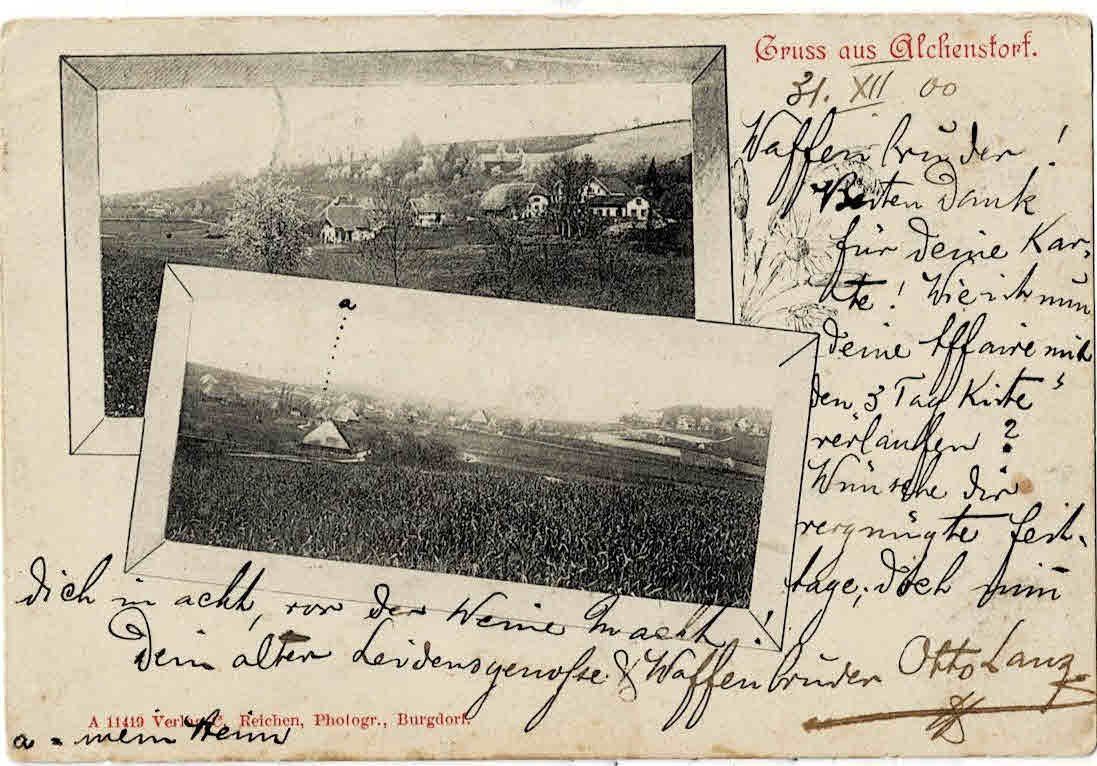 Gruss aus Alchenstorf.
31. XII 00
Waffenbruder!
Besten Dank
für Deine Kar-
te! Wie ist nun
deine Affaire mit
den "3 Tag Kiste"
verlaufen?
Wünsche dir
vergnügte Fest-
tage; doch nimm
dich in acht, vor der Weine Macht!
Dein alter Leidensgenosse & Waffenbruder Otto Lanz
a
A 11419 Verlag C. Reichen, Photogr., Burgdorf.
a = mein Heim